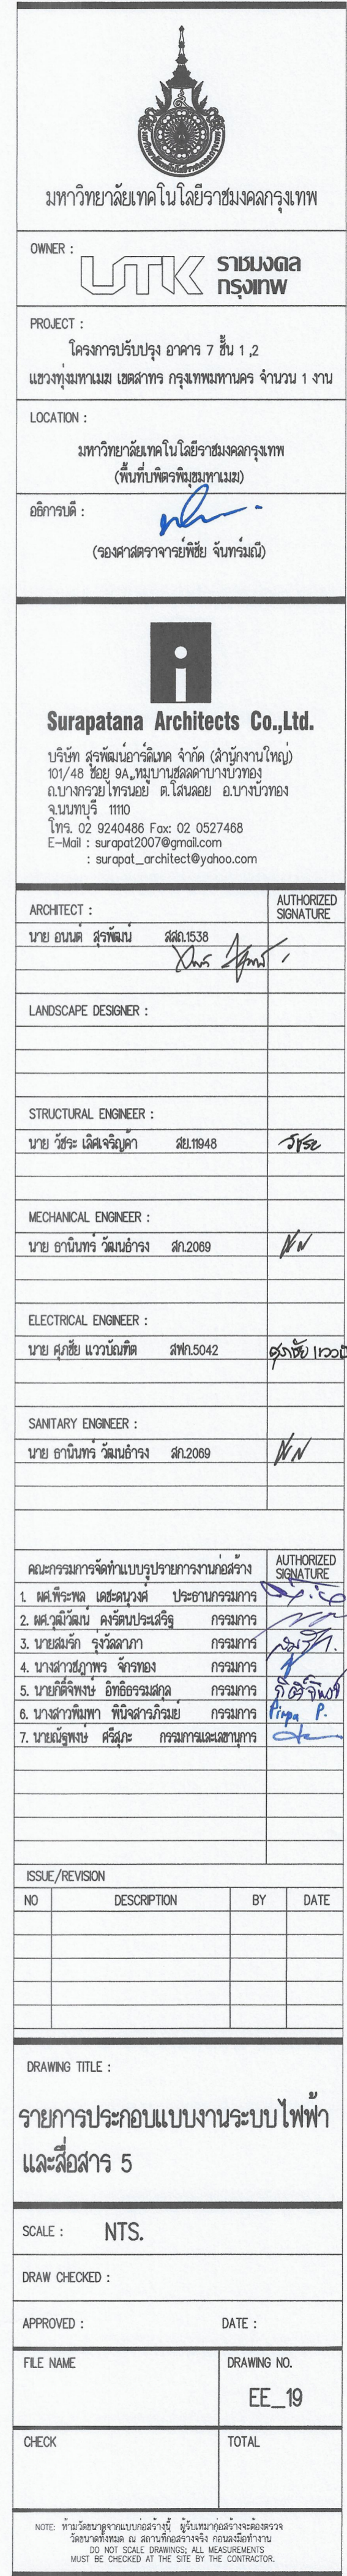 มหาวิทยาลัยเทคโนโลยีราชมงคลกรุงเทพ
OWNER :
UTK ราชมงคล
กรุงเทพ
PROJECT :
โครงการปรับปรุง อาคาร 7 ชั้น 1 ,2
แขวงทุ่งมหาเมฆ เขตสาทร กรุงเทพมหานคร จำนวน 1 งาน
LOCATION :
มหาวิทยาลัยเทคโนโลยีราชมงคลกรุงเทพ
(พื้นที่บพิตรพิมุขมหาเมฆ)
อธิการบดี :
(รองศาสตราจารย์พิชัย จันทร์มณี)
Surapatana Architects Co.,Ltd.
บริษัท สุรพัฒน์อาร์คิเทค จำกัด (สำนักงานใหญ่)
101/48 ซอย 9A,หมู่บ้านชลลดาบางบัวทอง
ถ.บางกรวยไทรน้อย ต.โสนลอย อ.บางบัวทอง
จ.นนทบุรี 11110
โทร. 02 9240486 Fax: 02 0527468
E-Mail : surapat2007@gmail.com
: surapat_architect@yahoo.com
ARCHITECT :
AUTHORIZED
SIGNATURE
นาย อนนต์ สุรพัฒน์ สสถ.1538
LANDSCAPE DESIGNER :
STRUCTURAL ENGINEER :
นาย วัชระ เลิศเจริญค้า สย.11948 วัชระ
MECHANICAL ENGINEER :
นาย ธานินทร์ วัฒนธำรง สก.2069
ELECTRICAL ENGINEER :
นาย ศุภชัย แววบัณฑิต สฟก.5042 ศุภชัย แววบ
SANITARY ENGINEER :
นาย ธานินทร์ วัฒนธำรง สก.2069
คณะกรรมการจัดทำแบบรูปรายการงานก่อสร้าง
AUTHORIZED
SIGNATURE
1. ผศ.พีระพล เดชะดนุวงศ์ ประธานกรรมการ
2. ผศ.วุฒิวัฒน์ คงรัตนประเสริฐ กรรมการ
3. นายสมรัก รุ่งวัลลาภา กรรมการ
4. นางสาวชฎาพร จักรทอง กรรมการ
5. นายกิติ์จิพงษ์ อิทธิธรรมสกุล กรรมการ
6. นางสาวพิมพา พินิจสารภิรมย์ กรรมการ Pimpa P.
7. นายณัฐพงษ์ ศรีสุภะ กรรมการและเลขานุการ
ISSUE/REVISION
NO DESCRIPTION BY DATE
DRAWING TITLE :
รายการประกอบแบบงานระบบไฟฟ้า
และสื่อสาร 5
SCALE : NTS.
DRAW CHECKED :
APPROVED : DATE :
FILE NAME DRAWING NO.
EE_19
CHECK TOTAL
NOTE: ห้ามวัดขนาดจากแบบก่อสร้างนี้ ผู้รับเหมาก่อสร้างจะต้องตรวจ
วัดขนาดทั้งหมด ณ สถานที่ก่อสร้างจริง ก่อนลงมือทำงาน
DO NOT SCALE DRAWINGS; ALL MEASUREMENTS
MUST BE CHECKED AT THE SITE BY THE CONTRACTOR.